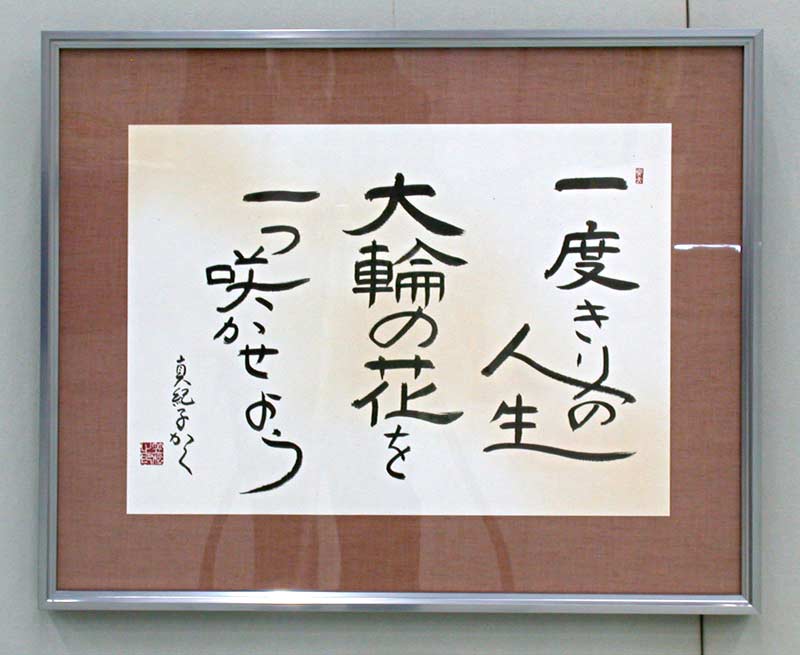 一度きりの
人生
大輪の花を
一つ咲かせよう
真紀子かく